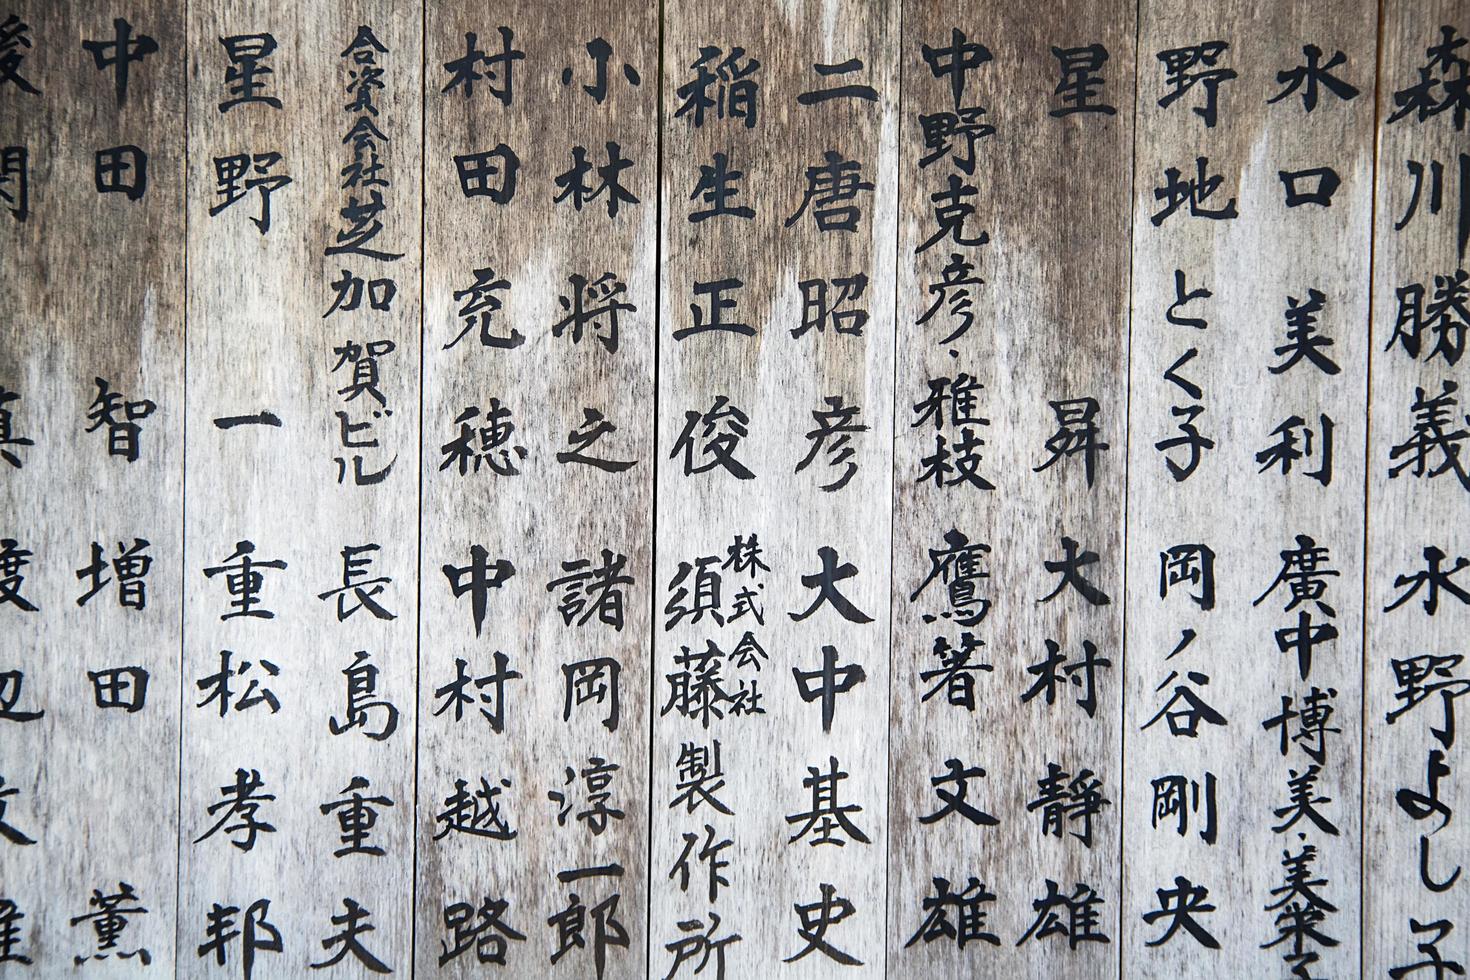 森川勝義 水野よし子
水口美利 廣中博美・美菜子
野地とく子 岡ノ谷剛央
星 昇 大村静雄
中野克彦・雅枝 鷹箸文雄
二唐昭彦 大中基史
稲生正俊 株式会社須藤製作所
小林将之 諸岡淳一郎
村田充穂 中村越路
合資会社芝加賀ビル 長島重夫
星野一 重松孝邦
中田智 増田薫